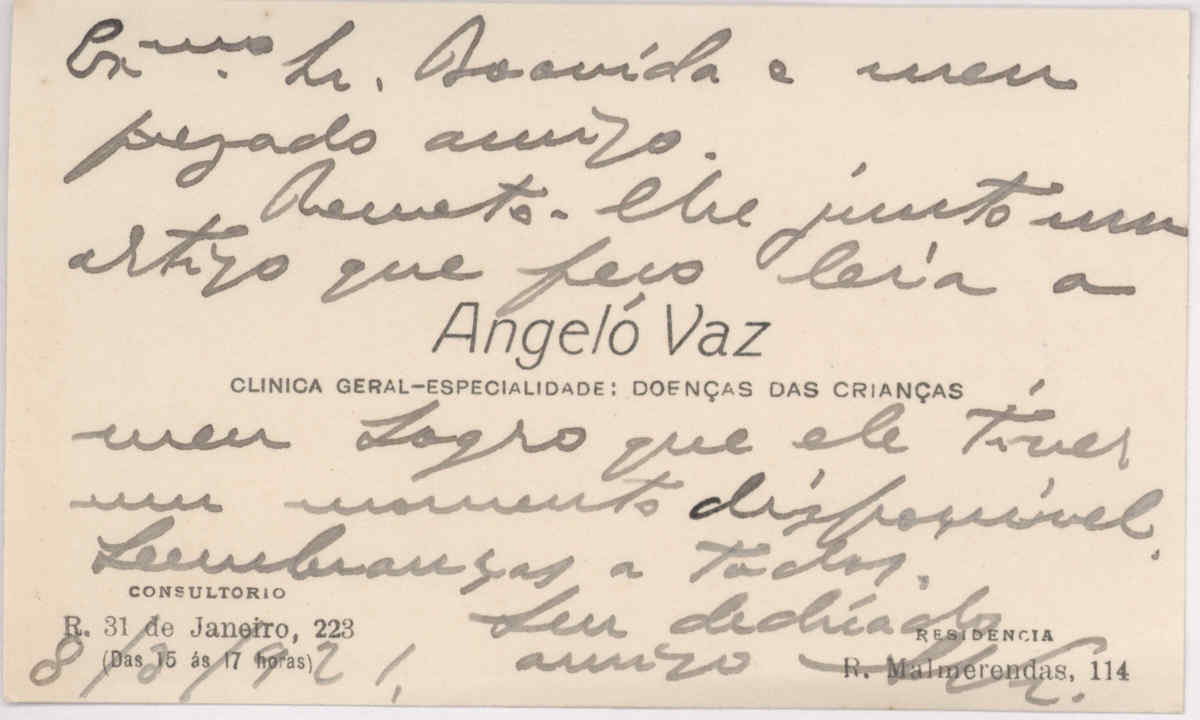 Ex.mo Sr. Boavida e meu
prezado amigo.
Remeto-lhe junto um
artigo que peço leia a
Angeló Vaz
CLINICA GERAL-ESPECIALIDADE: DOENÇAS DAS CRIANÇAS
meu Sogro que ele tiver
um momento disponível.
Lembranças a todos.
CONSULTORIO
R. 31 de Janeiro, 223
(Das 15 ás 17 horas)
Seu dedicado
amigo
RESIDÊNCIA
R. Malmerendas, 114